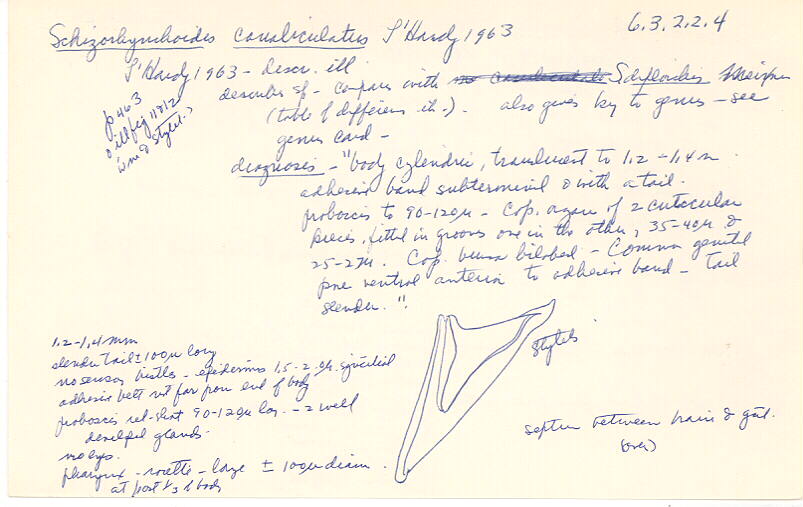 Schizorhynchoides canaliculatus L'Hardy 1963
6.3.2.2.4
L'Hardy 1963 - descr. ill
p 463
ill fig 11 & 12
wm & stylet
describes sp - compares with
(table of differences). also gives key to genus - see
genus card -
diagnosis - "body cylindric, translucent to 1.2 - 1.4 m
adhesive band subterminal & with a tail.
proboscis to 90-120µ - Cop. organ of 2 cuticular
pieces, fitted in grooves one in the other, 35-40µ &
25-27µ. Cop. bursa bilobed - Common genital
pore ventral anterior to adhesive band - tail
slender."
stylets
1.2-1,4 mm
slender tail ± 100µ long
no sensory bristles - epidermis 1,5-2µ syncitial
adhesive belt not far from end of body
proboscis rel. short 90-120µ lon. - 2 well
develped glands.
no eyes.
pharynx - rosette - large ± 100µ diam.
at post 1/3 of body
septum between brain & gut.
(over)